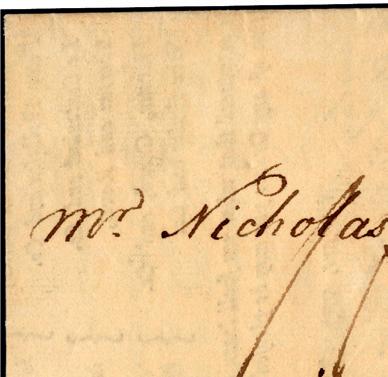 Mr. Nicholas